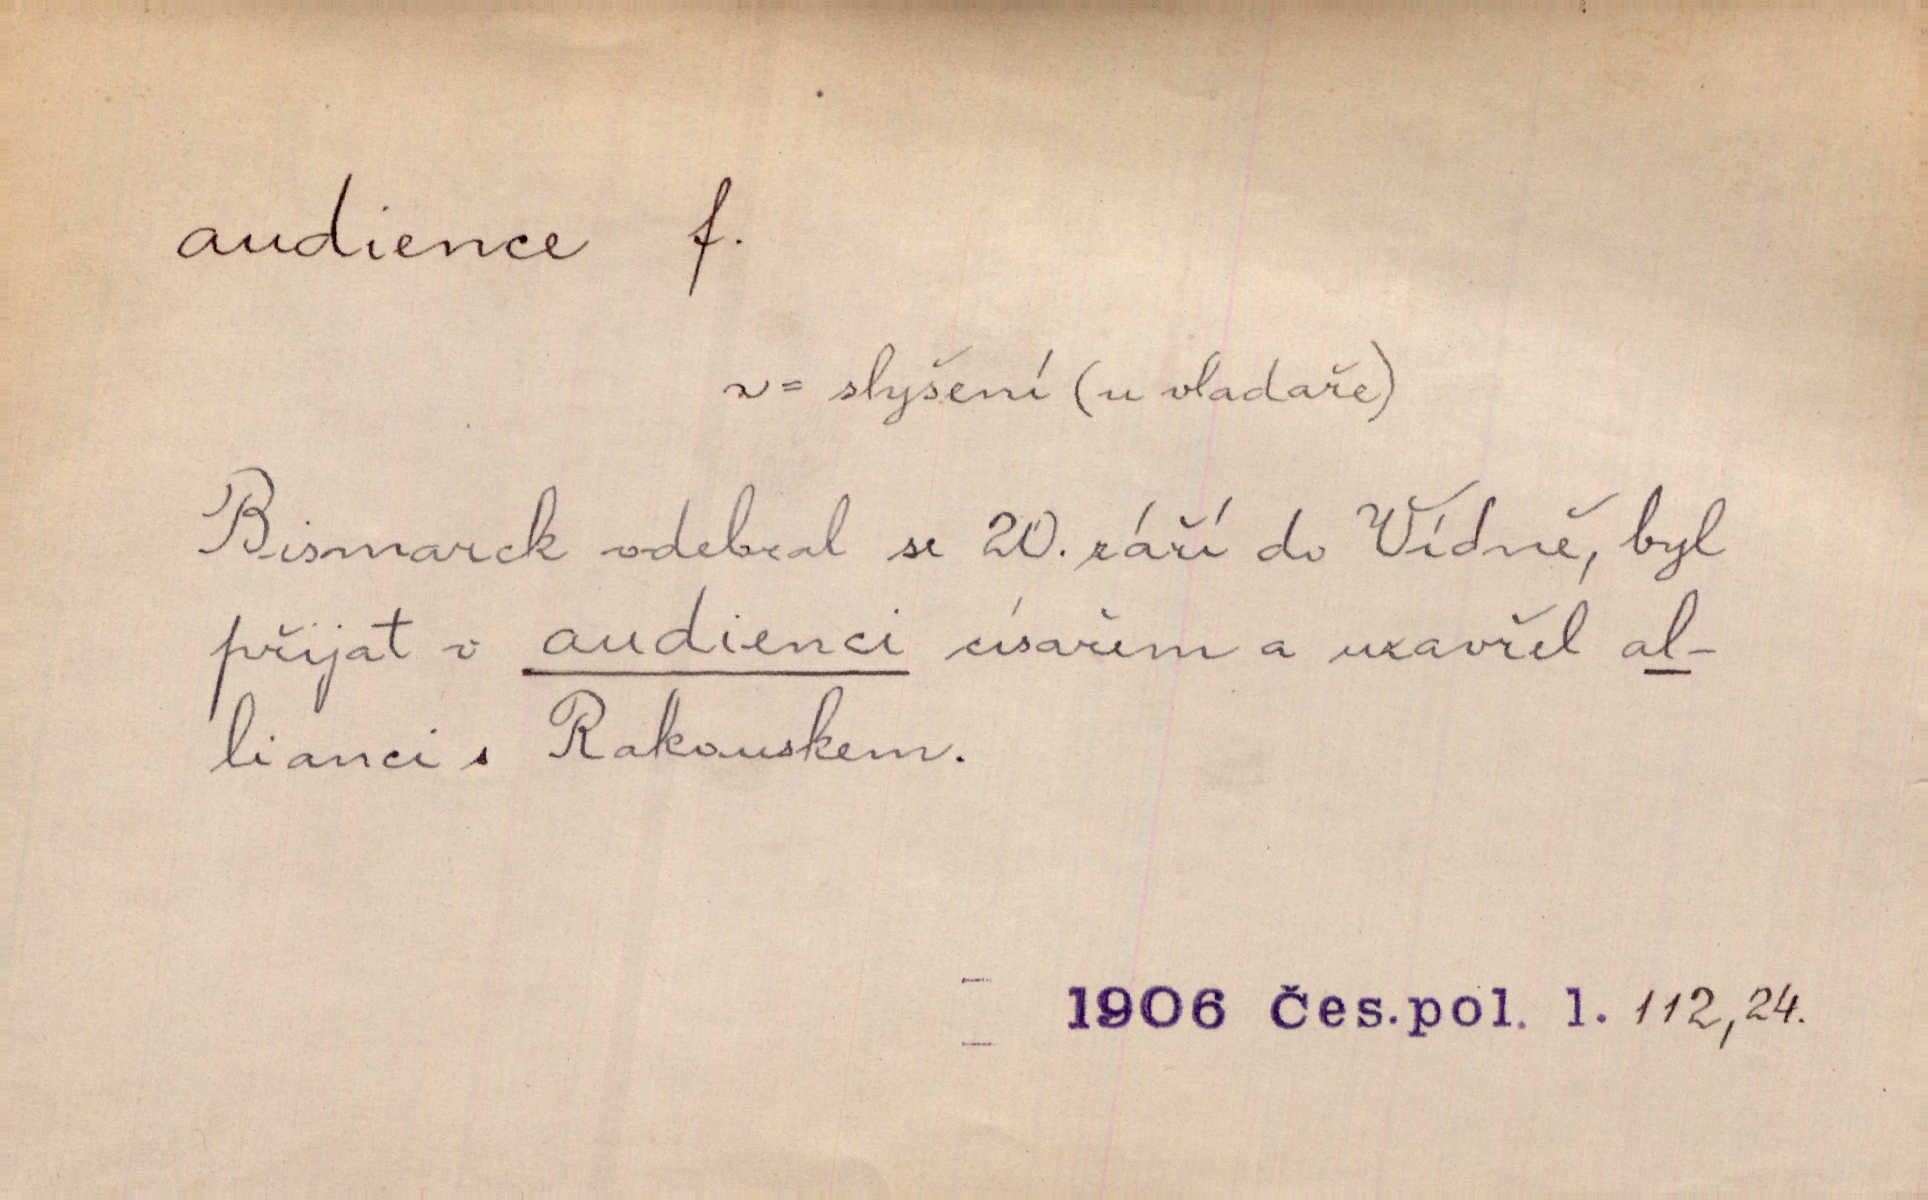 audience f.
v= slyšení (u vladaře)
Bismarck odebral se 20. září do Vídně, byl
přijat v audienci císařem a uzavřel al-
lianci s Rakouskem.
1906 Čes.pol. l. 112,24.